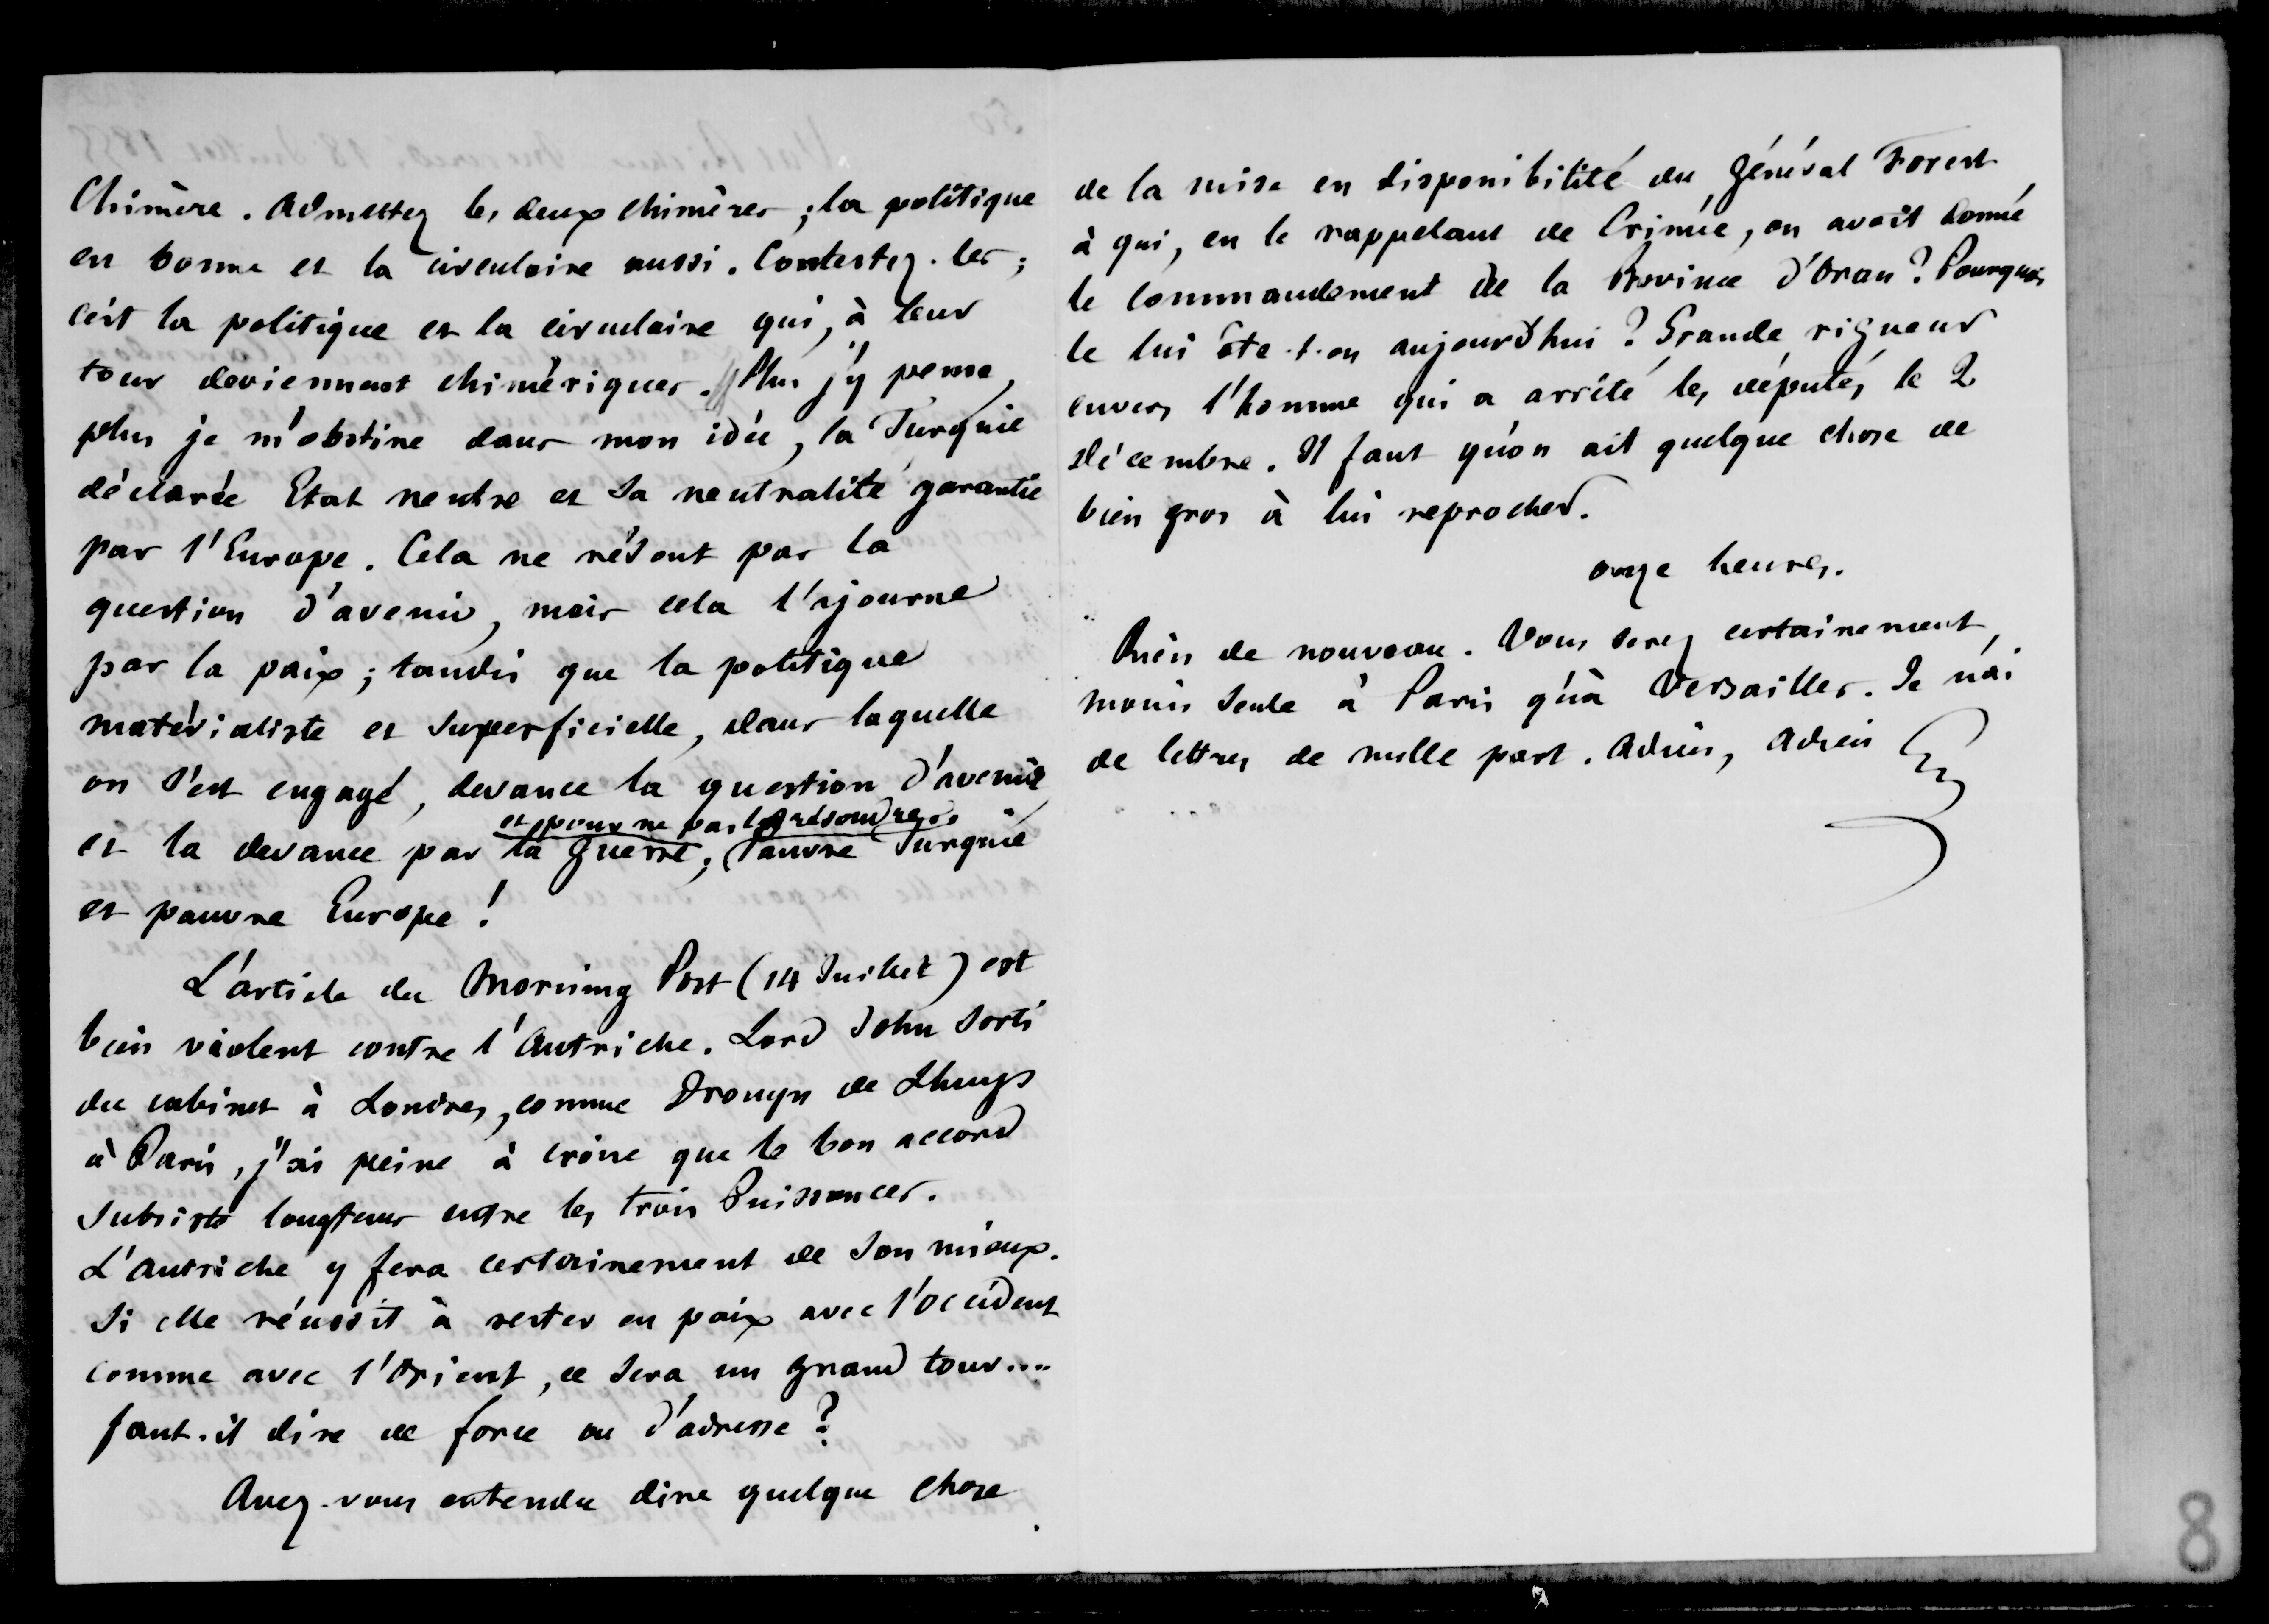 Chimère. Admettez les deux chimères ; la politique
est bonne et la circulaire aussi. Contestez-les ;
c'est la politique et la circulaire qui, à leur
tour deviennent chimériques. // Plus j'y pense,
plus je m'obstine dans mon idée, la Turquie
déclarée Etat neutre et sa neutralité garantie
par l'Europe. Cela ne résout pas la
question d'avenir, mais cela l'ajourne
par la paix ; tandis que la politique
matérialiste et superficielle, dans laquelle
on s'est engagé, devance la question d'avenir
et pour ne pas la résoudre
et la devance par la guerre ; Pauvre Turquie
et pauvre Europe !
L'article du Morning Post (14 Juillet) est
bien violent contre l'Autriche. Lord John sorti
du cabinet à Londres, comme Drouyn de Lhuys
à Paris, j'ai peine à croire que le bon accord
subsiste longtems entre les trois Puissances.
L'Autriche y fera certainement de son mieux.
Si elle réussit à rester en paix avec l'Occident
comme avec l'Orient, ce sera un grand tour....
faut-il dire de force ou d'adresse ?
Avez-vous entendu dire quelque chose
de la mise en disponibilité du Général Forest
à qui, en le rappelant de Crimée, on avait donné
le commandement de la Province d'Oran ? Pourquoi
le lui ôte-t-on aujourd'hui ? Grande rigueur
envers l'homme qui a arrêté les députés le 2
décembre. Il faut qu'on ait quelque chose de
bien gros à lui reprocher.
onze heures.
Rien de nouveau. Vous serez certainement,
moins seule à Paris qu'à Versailles. Je n'ai
de lettres de nulle part. Adieu, Adieu
8